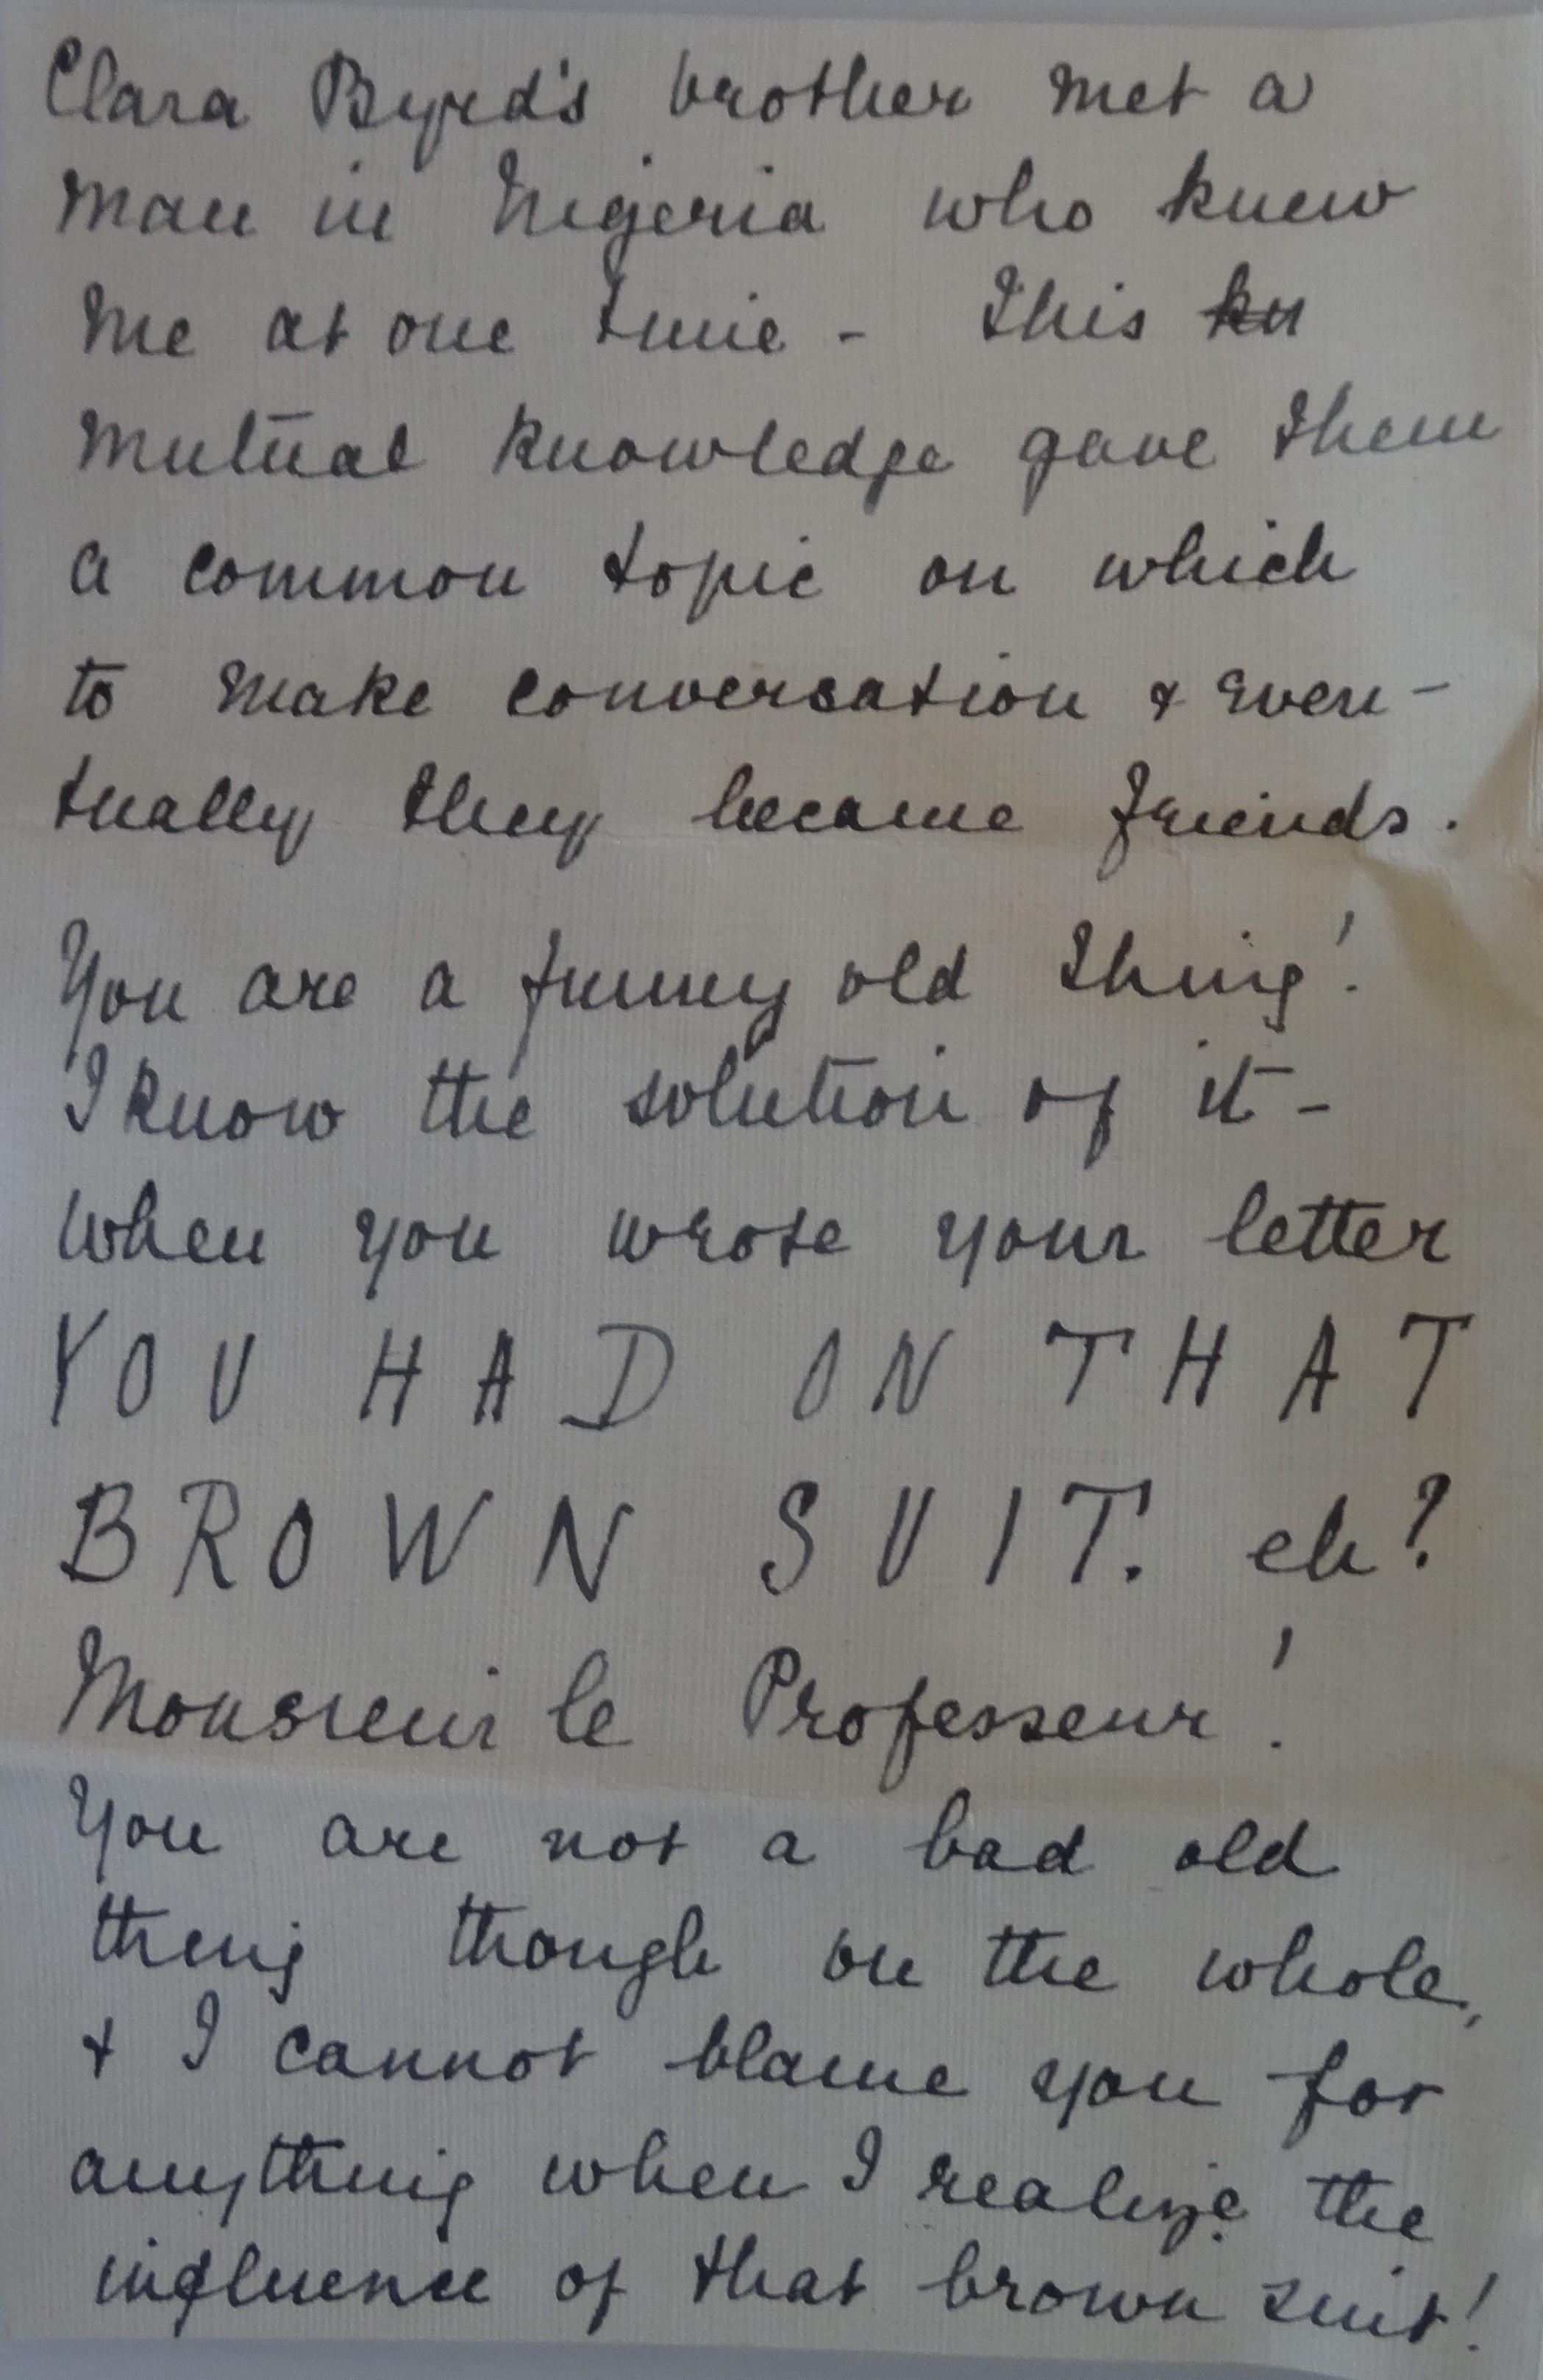 Clara Byrd's brother met a
man in Nigeria who knew
me at one time - This kn
mutual knowledge gave them
a common topic on which
to make conversation & even-
tually they became friends.
You are a funny old thing!
I know the solution of it -
when you wrote your letter
YOU HAD ON THAT
BROWN SUIT. eh?
Monsieur le Professeur!
You are not a bad old
thing though on the whole,
& I cannot blame you for
anything when I realize the
influence of that brown suit!